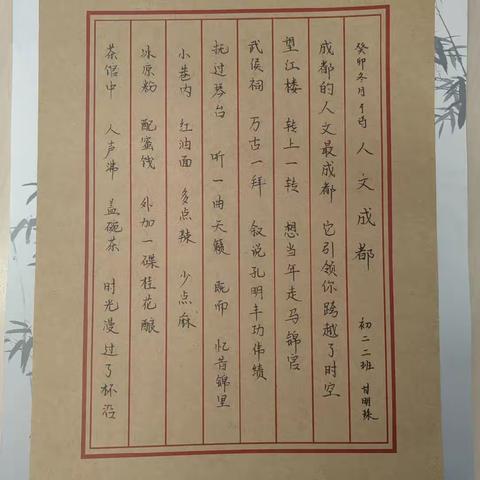 癸卯冬月于丙 人文成都 初二二班 甘明珠
成都的人文最成都 它引领你跨越了时空
望江楼 转上一转 想当年走马锦官
武侯祠 万古一拜 叙说孔明丰功伟绩
抚过琴台 听一曲天籁 既而 忆昔锦里
小巷内 红油面 多点辣 少点麻
冰原粉 配蜜饯 外加一碟桂花酿
茶馆中 人声沸 盖碗茶 时光漫过了杯沿